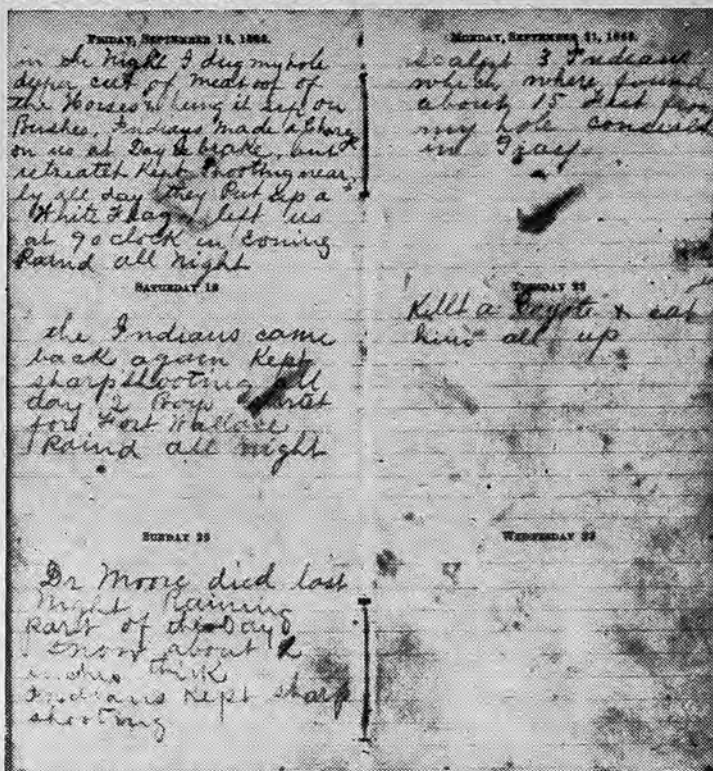 FRIDAY, SEPTEMBER 18, 1868.
in the Night I dug my hole
deper cut of meat oof of
the Horses & hung it up on
Bushes, Indians made a Charg
on us at Day brake, but
retreatet Kept Shooting near
ly all day they Put up a
White Flag, left us
at 9 oclock in Evening
Raind all night
SATURDAY 19
the Indians came
back again Kept
sharp shooting all
day 2 Boys startet
for Fort Wallace
Raind all night
SUNDAY 20
Dr Moore died last
Night Raining
part of the Day
snow about
inches thick
Indians Kept sharp
shooting
MONDAY, SEPTEMBER 21, 1868.
scalpt 3 Indians
which where found
about 15 Feet from
my hole conceald
in
TUESDAY 22
Killt a Coyote & eat
him all up
WEDNESDAY 23